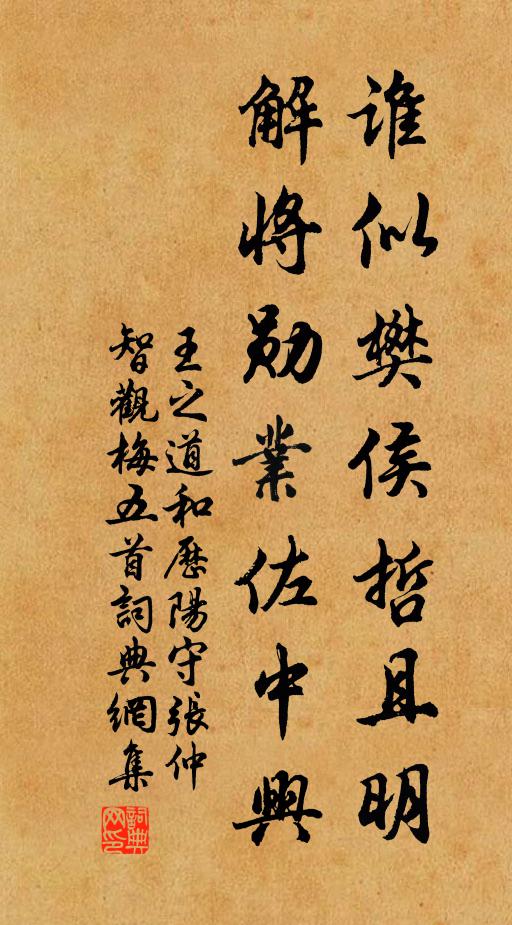 誰似樊侯哲且明
解將勛業佐中興
王之道和歷陽守張仲
智觀梅五首詞典網集
詞典
网印